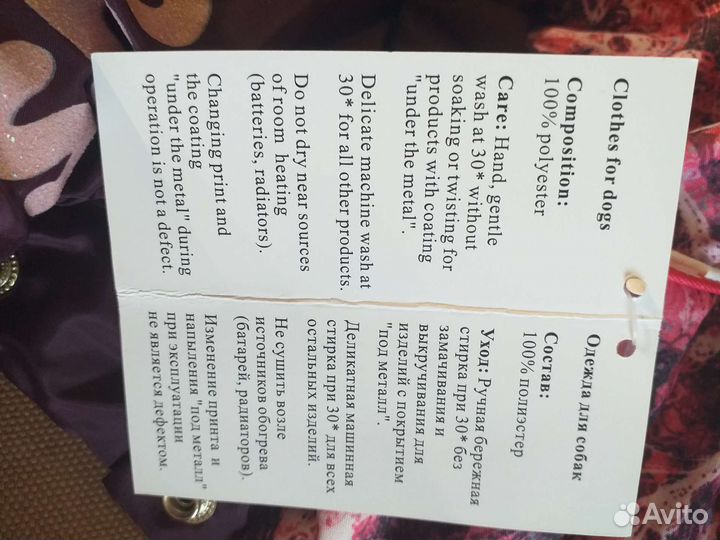 Clothes for dogs
Composition:
100% polyester
Care: Hand, gentle
wash at 30* without
soaking or twisting for
products with coating
"under the metal".
Delicate machine wash at
30* for all other products.
Do not dry near sources
of room heating
(batteries, radiators).
Changing print and
the coating
"under the metal" during
operation is not a defect.
Одежда для собак
Состав:
100% полиэстер
Уход: Ручная бережная
стирка при 30* без
замачивания и
выкручивания для
изделий с покрытием
"под металл".
Деликатная машинная
стирка при 30* для всех
остальных изделий.
Не сушить возле
источников обогрева
(батарей, радиаторов).
Изменение принта и
напыления "под металл"
при эксплуатации
не является дефектом.
Avito